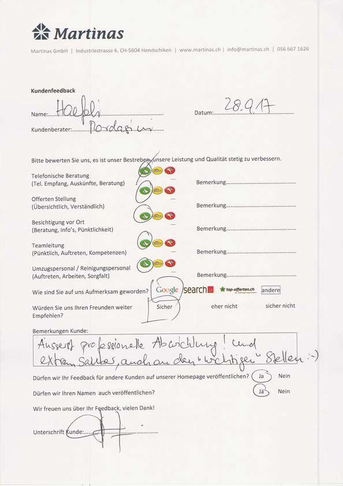 Martinas
Martinas GmbH | Industriestrasse 6, CH-5604 Hendschiken | www.martinas.ch | info@martinas.ch | 056 667 1626
Kundenfeedback
Name: Haefeli Datum: 28.9.17
Kundenberater:
Bitte bewerten Sie uns, es ist unser Bestreben, unsere Leistung und Qualität stetig zu verbessern.
Telefonische Beratung
(Tel. Empfang, Auskünfte, Beratung) Bemerkung
Offerten Stellung
(Übersichtlich, Verständlich) Bemerkung
Besichtigung vor Ort
(Beratung, Info's, Pünktlichkeit) Bemerkung
Teamleitung
(Pünktlich, Auftreten, Kompetenzen) Bemerkung
Umzugspersonal / Reinigungspersonal
(Auftreten, Arbeiten, Sorgfalt) Bemerkung
Wie sind Sie auf uns Aufmerksam geworden? Google search top-offerten.ch andere
Würden Sie uns Ihren Freunden weiter Sicher eher nicht sicher nicht
Empfehlen?
Bemerkungen Kunde:
Äusserst professionelle Abwicklung! und
extrem sauber, auch an den "wichtigen" Stellen :-)
Dürfen wir Ihr Feedback für andere Kunden auf unserer Homepage veröffentlichen? Ja Nein
Dürfen wir Ihren Namen auch veröffentlichen? Ja Nein
Wir freuen uns über Ihr Feedback, vielen Dank!
Unterschrift Kunde: